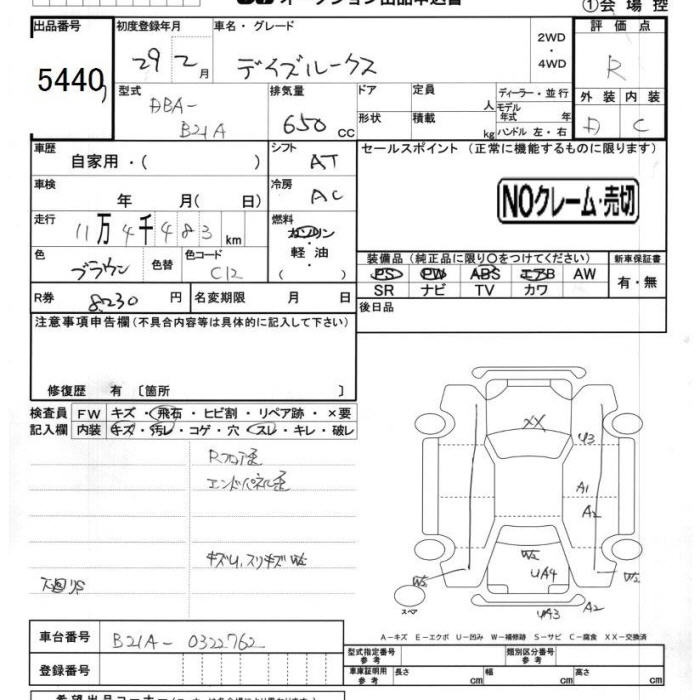 ①会場控
出品番号
5440
初度登録年月
29 2月
車名・グレード
デイズルークス
2WD
・
4WD
評価点
R
型式
DBA-
B21A
排気量
650 cc
ドア
定員 人
形状
積載 kg
ディーラー・並行
モデル年式 年
ハンドル 左・右
外装 内装
D C
車歴
自家用・( )
シフト
AT
セールスポイント (正常に機能するものに限ります)
NOクレーム・売切
車検
年 月( 日)
冷房
AC
走行
11万4千483km
燃料
ガソリン
・
軽油
( )
色
ブラウン
色替
色コード
C12
装備品(純正品に限り○をつけてください)
新車保証書
PS PW ABS エアB AW
SR ナビ TV カワ
有・無
R券 8230円
名変期限 月 日
後日品
注意事項申告欄(不具合内容等は具体的に記入して下さい)
修復歴 有 〔箇所 〕
検査員
記入欄
FW キズ・飛石・ヒビ割・リペア跡・×要
内装 キズ・汚レ・コゲ・穴・スレ・キレ・破レ
Rフロア歪
エンドパネル歪
キズU、スリキズW2
下回りS
XX
U3
A1
A2
W2
UA4
W2
W2
UA3
A2
スペア
A－キズ E－エクボ U－凹み W－補修跡 S－サビ C－腐食 XX－交換済
車台番号
B21A-0322762
登録番号
型式指定番号
参考
類別区分番号
参考
車庫証明用
参考
長さ cm
幅 cm
高さ cm